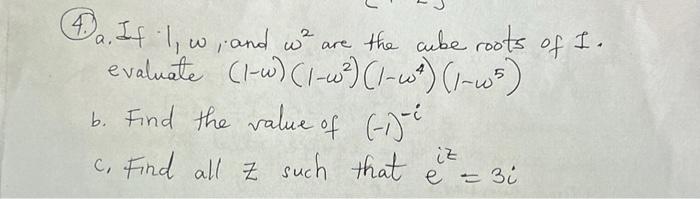 4. a. If 1, ω, and ω² are the cube roots of 1.
evaluate (1-ω)(1-ω²)(1-ω⁴)(1-ω⁵)
b. Find the value of (-i)⁻ⁱ
c. Find all Z such that e^{iz} = 3i